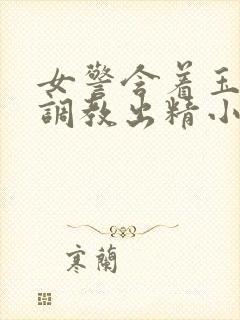 女警含着玉
調教出精小
寒蘭